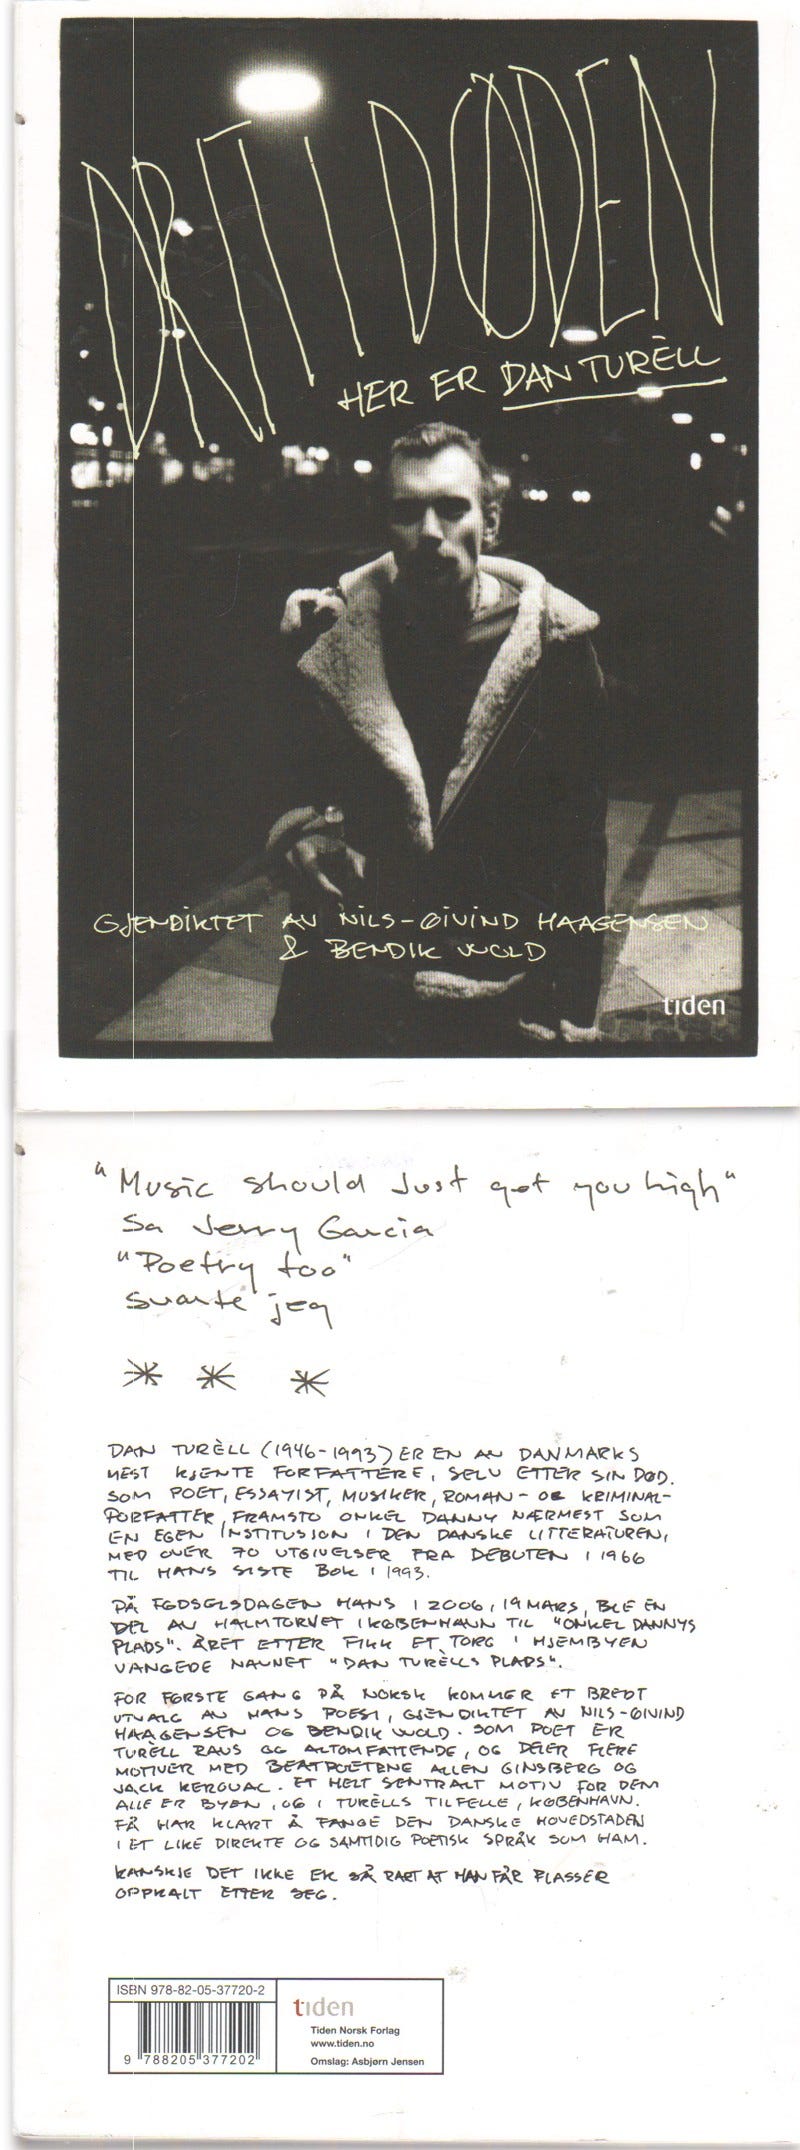 DRIT I DØDEN
HER ER DAN TURÈLL
GJENDIKTET AV NILS-ØIVIND HAAGENSEN
& BENDIK WOLD
tiden
"Music should just get you high"
Sa Jerry Garcia
"Poetry too"
svarte jeg
* * *
DAN TURÈLL (1946-1993) ER EN AV DANMARKS
MEST KJENTE FORFATTERE, SELV ETTER SIN DØD.
SOM POET, ESSAYIST, MUSIKER, ROMAN- OG KRIMINAL-
FORFATTER, FRAMSTO ONKEL DANNY NÆRMEST SOM
EN EGEN INSTITUSJON I DEN DANSKE LITTERATUREN,
MED OVER 70 UTGIVELSER FRA DEBUTEN I 1966
TIL HANS SISTE BOK I 1993.
PÅ FØDSELSDAGEN HANS I 2006, 19 MARS, BLE EN
DEL AV HALMTORVET I KØBENHAVN TIL "ONKEL DANNYS
PLADS". ÅRET ETTER FIKK ET TORG I HJEMBYEN
VANGEDE NAVNET "DAN TURÈLLS PLADS".
FOR FØRSTE GANG PÅ NORSK KOMMER ET BREDT
UTVALG AV HANS POESI, GJENDIKTET AV NILS-ØIVIND
HAAGENSEN OG BENDIK WOLD. SOM POET ER
TURÈLL RAUS OG ALTOMFATTENDE, OG DELER FLERE
MOTIVER MED BEATPOETENE ALLEN GINSBERG OG
JACK KEROUAC. ET HELT SENTRALT MOTIV FOR DEM
ALLE ER BYEN, OG I TURÈLLS TILFELLE, KØBENHAVN.
FÅ HAR KLART Å FANGE DEN DANSKE HOVEDSTADEN
I ET LIKE DIREKTE OG SAMTIDIG POETISK SPRÅK SOM HAM.
KANSKJE DET IKKE ER SÅ RART AT HAN FÅR PLASSER
OPPKALT ETTER SEG.
ISBN 978-82-05-37720-2
9 788205 377202
tiden
Tiden Norsk Forlag
www.tiden.no
Omslag: Asbjørn Jensen